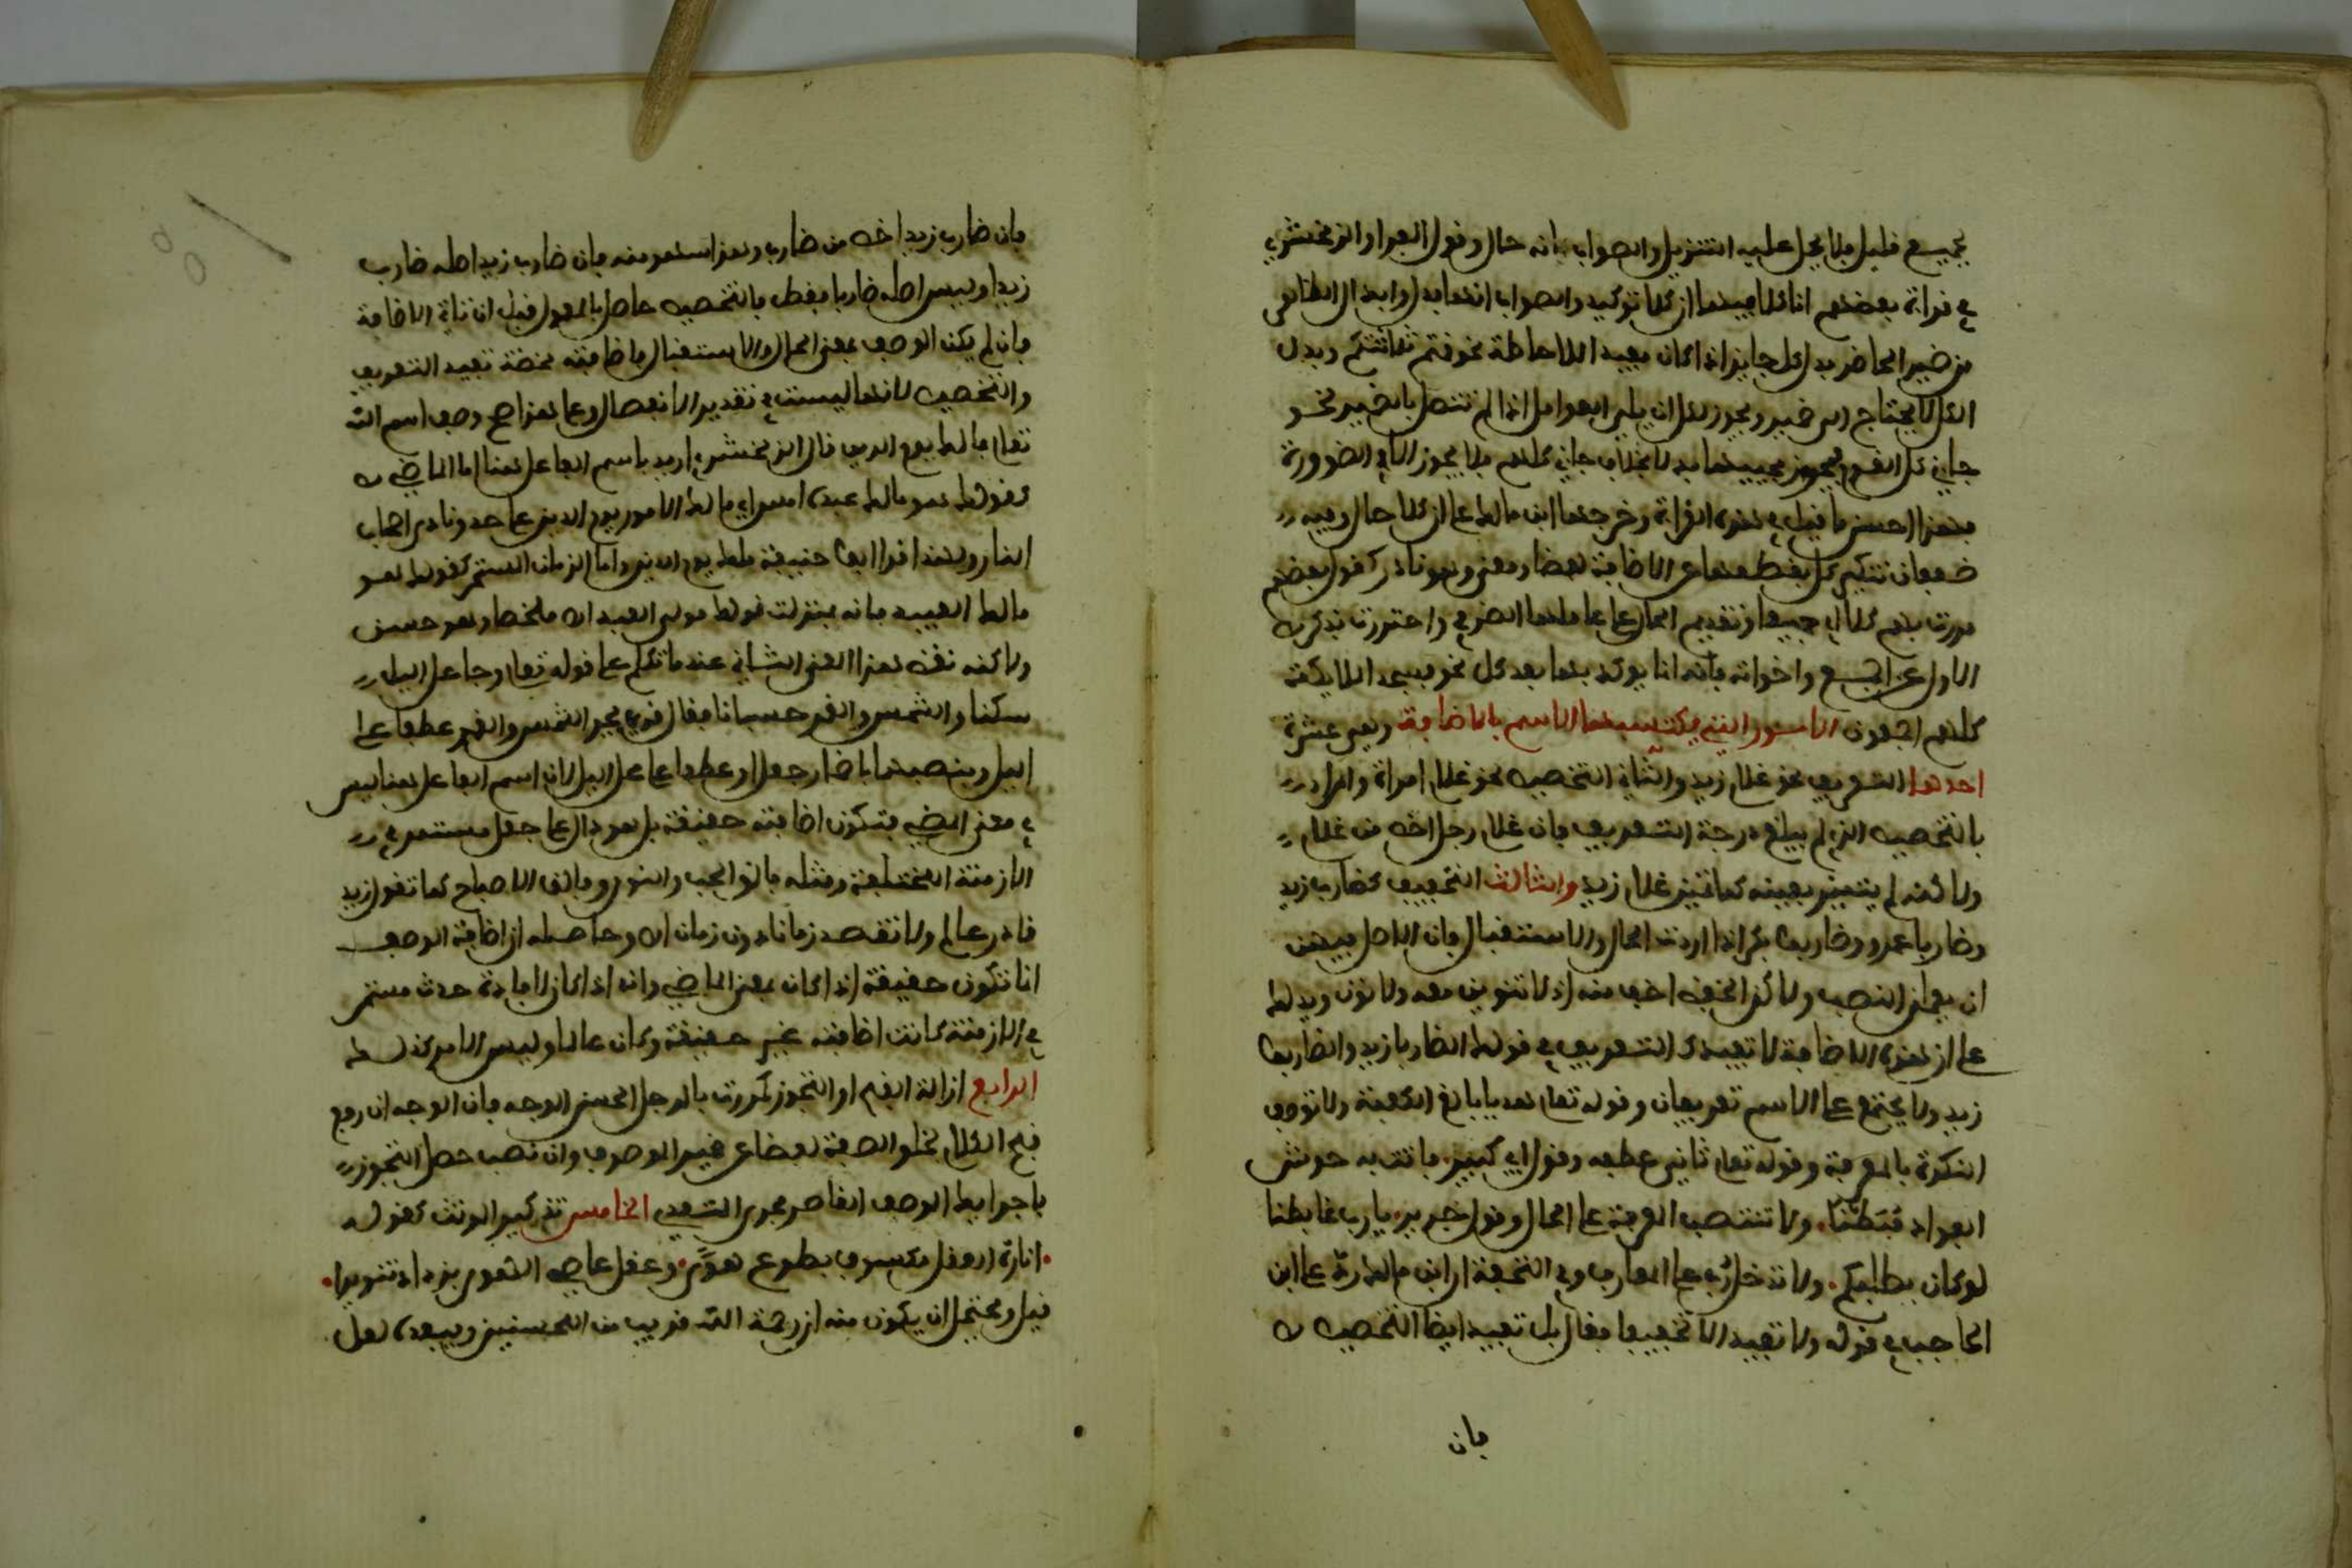 بجميع قليل فلا يحمل عليه التنزيل والصواب انه حال وقول الفرا والزمخشري
في قراة بعضهم انا كلا فيها ان كلا توكيد والصواب انها بدل وابدال الظاهر
من ضمير الحاضر بدل كل جايز اذا كان مفيدا للاحاطة نحو قمتم ثلاثتكم وبدل
الكل لا يحتاج الى ضمير ويجوز لكل ان يلي العوامل اذا لم تتصل بالضمير نحو
جاني كل القوم فيجوز مجييها بدلا بخلاف جاني كلهم فلا يجوز الا في الضرورة
فهذا احسن ما قيل في هذه القراة وخرجها ابن مالك على ان كلا حال وفيه
ضعفان تنكير كل بقطعها عن الاضافة لفظا ومعنى وهو نادر كقول بعضهم
مررت بهم كلا اي جميعا وتقديم الحال على عاملها الظرفي واحترزت بذكر
الاول عن اجمع واخواته فانه انما يوكد بها بعد كل نحو فسجد الملايكة
كلهم اجمعون الامور التي يكتسبها الاسم بالاضافة وهي عشرة
احدها التعريف نحو غلام زيد والثاني التخصيص نحو غلام امراة والمراد
بالتخصيص الذي لم يبلغ درجة التعريف فان غلام رجل اخص من غلام
ولاكنه لم يتميز بعينه كما تميز غلام زيد والثالث التخفيف كضارب زيد
وضاربا عمرو وضاربوا بكر اذا اردت الحال والاستقبال فان الاصل فيهن
ان يعملن النصب ولاكن الخفض اخف منه اذ لا تنوين معه ولا نون ويدلك
على ان هذه الاضافة لا تفيد التعريف في قولك الضاربا زيد والضاربوا
زيد ولا يجتمع على الاسم تعريفان وقوله تعلى هديا بالغ الكعبة ولا توصف
النكرة بالمعرفة وقوله تعلى ثاني عطفه وقول ابي كبير فاتت به حوش
الفواد مُبَطَّنا. ولا تنتصب المعرفة على الحال وقول جرير يارب غابطنا
لو كان يطلبكم. ولا تدخل رُب على المعارف وفي التحفة ان ابن مالك رد على ابن
الحاجب في قوله ولا تفيد الا تخفيفا فقال بل تفيد ايضا التخصيص
فان
فان ضارب زيد اخص من ضارب وهذا سهو منه فان ضارب زيد اصله ضارب
زيدا وليس اصله ضاربا فقط فالتخصيص حاصل بالمعمول قبل ان تاتي الاضافة
فان لم يكن الوصف بمعنى الحال والاستقبال فاضافته محضة تفيد التعريف
والتخصيص لانها ليست في تقدير الانفصال وعلى هذا صح وصف اسم الله
تعلى بمالك يوم الدين قال الزمخشري اريد باسم الفاعل هنا اما الماضي
كقولك هو مالك عبده امس اي مالك الامور يوم الدين على حد ونادى اصحاب
النار ولهذا قرا ابو حنيفة ملك يوم الدين واما الزمان المستمر كقولك هو
مالك العبيد فانه بمنزلة قولك مولى العبيد اه ملخصا وهو حسن
ولاكنه نقض هذا المعنى الثاني عندما تكلم على قوله تعلى وجاعل اليل
سكنا والشمس والقمر حسبانا فقال قري بجر الشمس والقمر عطفا على
اليل وبنصبهما باضمار جعل او عطفا على محل اليل لان اسم الفاعل هنا ليس
في معنى المضي فتكون اضافته حقيقة بل هو دال على جعل مستمر في
الازمنة المختلفة ومثله فالق الحب والنوى وفالق الاصباح كما تقول زيد
قادر عالم ولا تقصد زمانا دون زمان اه وحاصله ان اضافة الوصف
انما تكون حقيقة اذا كان بمعنى الماضي وانه اذا كان لافادة حدث مستمر
في الازمنة كانت اضافته غير حقيقة وكان عاملا وليس الامر كذلك
الرابع ازالة القبح او التجوز كمررت بالرجل الحسن الوجه فان الوجه ان رفع
قبح الكلام لخلو الصفة لفظا عن ضمير الموصوف وان نصب حصل التجوز
باجرايك الوصف القاصر مجرى المتعدي الخامس تذكير المونث كقوله
انارة العقل مكسوف بطوع هوًى. وعقل عاصي الهوى يزداد تنويرا.
قيل ويحتمل ان يكون منه ان رحمة الله قريب من المحسنين ويبعده لعل